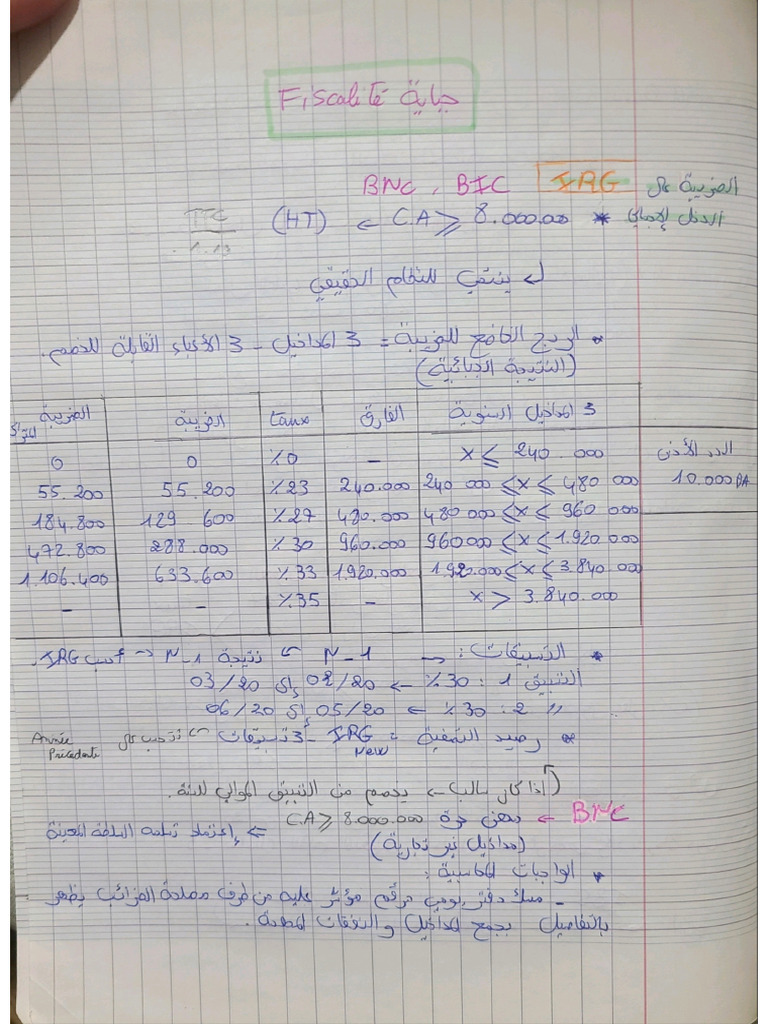 Fiscalité جباية
الضريبة على الدخل الإجمالي IRG BIC , BNC
* C.A ⩾ 8.000.000 ← (HT) TTC / 1.19
↳ ينتمي للنظام الحقيقي
* الربح الخاضع للضريبة = Σ المداخيل - Σ الأعباء القابلة للخصم.
(النتيجة الجبائية)
Σ المداخيل السنوية | الفارق | taux | الضريبة | الضريبة
الحد الأدنى | x ⩽ 240.000 | - | %0 | 0 | 0
10.000 DA | 240 000 ⩽ x ⩽ 480 000 | 240.000 | %23 | 55.200 | 55.200
480 000 ⩽ x ⩽ 960 000 | 480.000 | %27 | 129 600 | 184.800
960000 ⩽ x ⩽ 1.920 000 | 960.000 | %30 | 288.000 | 472.800
1.920.000 ⩽ x ⩽ 3.840 000 | 1.920.000 | %33 | 633.600 | 1.106.400
x > 3.840.000 | - | %35 | - | -
* التسبيقات : → N-1 ← نتيجة N-1 → IRG.
التسبيق 1 : 30% ← 02/20 إلى 03/20
" 2 : 30% ← 05/20 إلى 06/20
* رصيد التصفية = IRG New - Σ تسبيقات ← تحسب على Année Précédente
(إذا كان سالب ← يخصم من التسبيق الموالي للسنة.
BNC ← مهن حرة C.A ⩾ 8.000.000 ⇐ إعتماد تسلمه السلطة المعينة
(مداخيل غير تجارية)
* الواجبات المحاسبية :
- مسك دفتر يومي مرقم مؤشر عليه من طرف مصلحة الضرائب يظهر
بالتفاصيل بجمع المداخيل والنفقات المهنية.